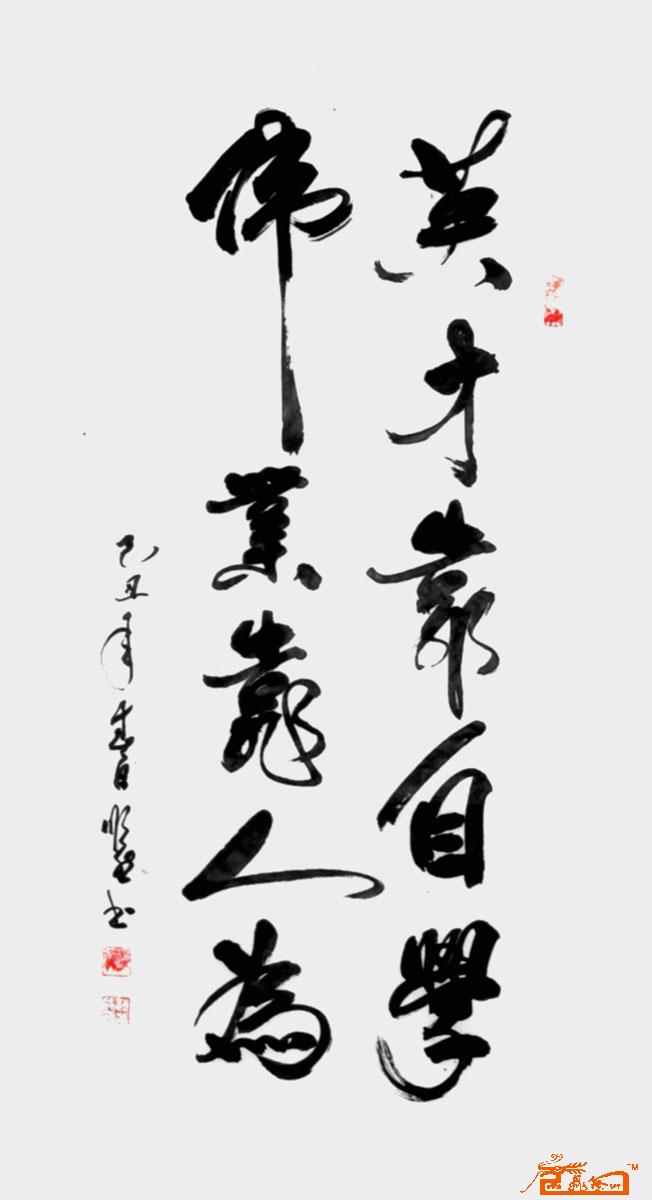 英才靠自學
偉業靠人為
己丑年春
書